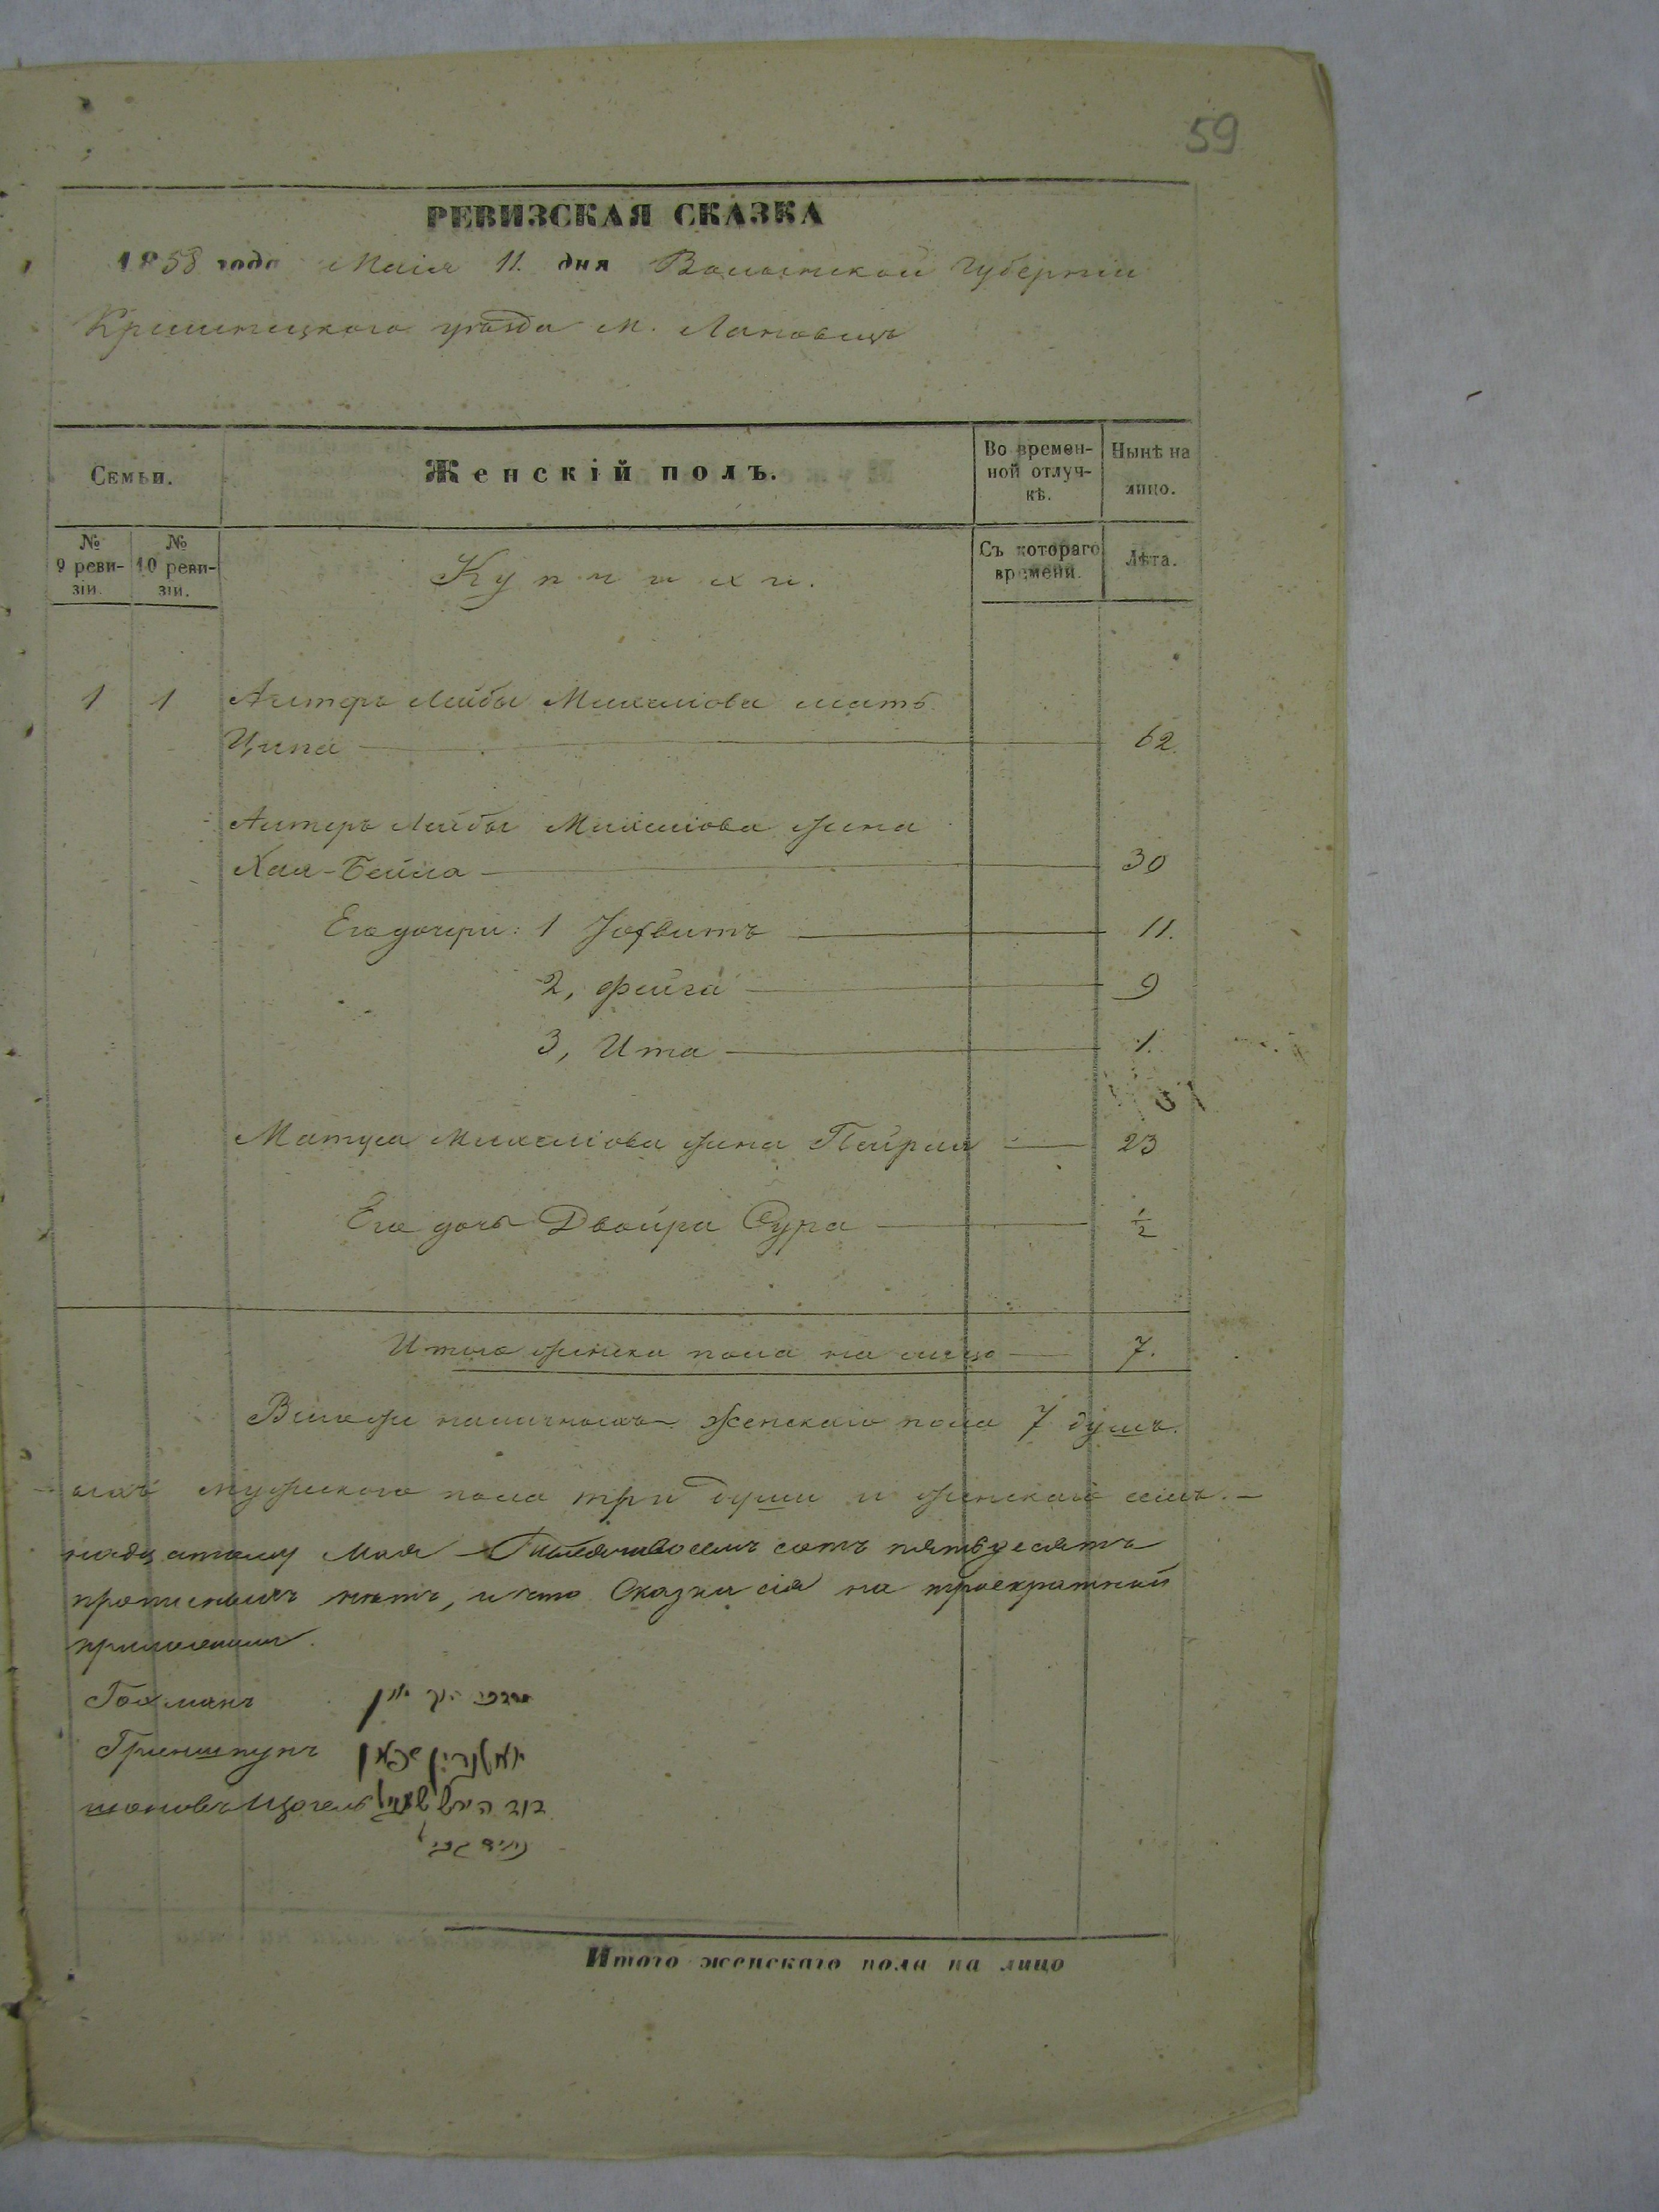 59
РЕВИЗСКАЯ СКАЗКА
1858 года Маія 11. дня Волынской Губерніи
Кременецкого уѣзда м. Лановецъ
Семьи.
Женскій полъ.
Во времен-
ной отлуч-
кѣ.
Нынѣ на
лицо.
№
9 реви-
зіи.
№
10 реви-
зіи.
Купчихи.
Съ котораго
времени.
Лѣта.
1 1 Лейбы мать
Ципа 62.
Лейбы жена
Хая-Бейла 30
Его дочери: 1 11.
2, Фейга 9
3, Ита 1.
Матуса жена Пейрля 23
Его дочь Двойра Сура ½
Итого женска пола на лицо 7.
женскаго пола 7 душъ.
мужскаго пола три души и женскаго семь.
надцатому Мая восемь сотъ пятьдесятъ
прописныхъ нѣтъ, и что Сказка сія на троекратной
Гохманъ
Гриншпунъ
דוד הירש
Итого женскаго пола на лицо